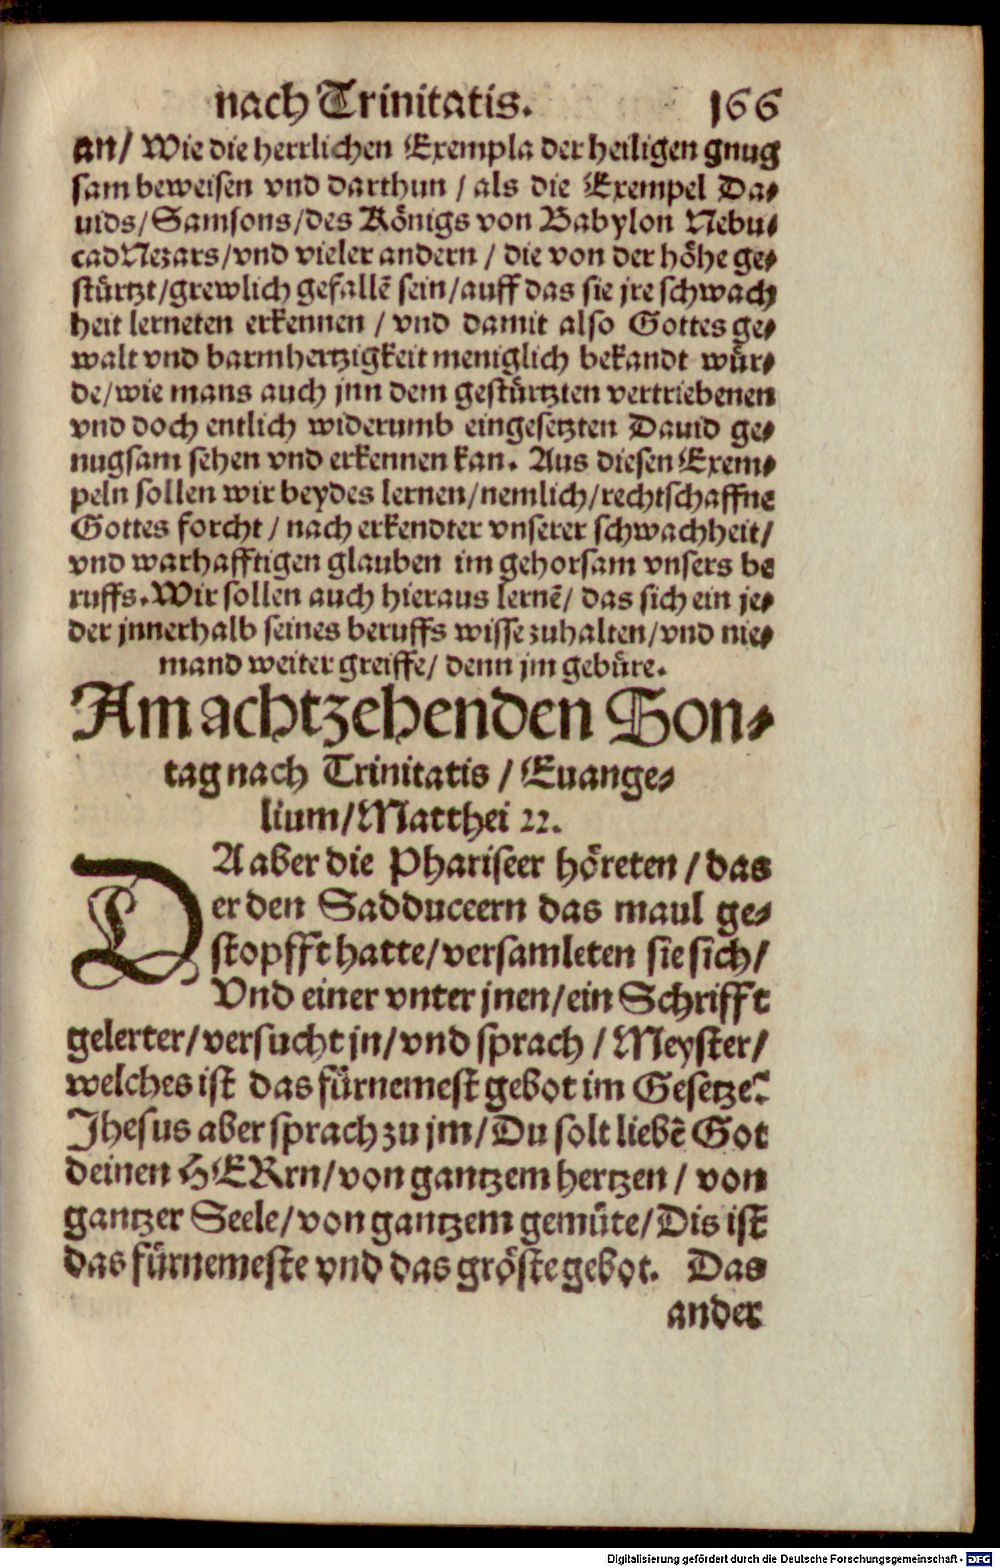 nach Trinitatis. 166
an/ Wie die herrlichen Exempla der heiligen gnug
sam beweisen vnd darthun / als die Exempel Da⸗
uids/Samsons/des Königs von Babylon Nebu⸗
cadNezars/vnd vieler andern / die von der höhe ge⸗
stürtzt/grewlich gefallē sein/auff das sie jre schwach
heit lerneten erkennen / vnd damit also Gottes ge⸗
walt vnd barmhertzigkeit meniglich bekandt wür⸗
de/wie mans auch jnn dem gestürtzten vertriebenen
vnd doch entlich widerumb eingesetzten Dauid ge⸗
nugsam sehen vnd erkennen kan. Aus diesen Exem⸗
peln sollen wir beydes lernen/nemlich/rechtschaffne
Gottes forcht / nach erkendter vnserer schwachheit/
vnd warhafftigen glauben im gehorsam vnsers be
ruffs. Wir sollen auch hieraus lernē/ das sich ein je⸗
der jnnerhalb seines beruffs wisse zuhalten/vnd nie⸗
mand weiter greiffe/ denn jm gebüre.
Am achtzehenden Son⸗
tag nach Trinitatis / Euange⸗
lium/Matthei 22.
DA aber die Phariseer höreten / das
er den Sadduceern das maul ge⸗
stopfft hatte/versamleten sie sich/
Vnd einer vnter jnen/ein Schrifft
gelerter/versucht jn/vnd sprach / Meyster/
welches ist das fürnemest gebot im Gesetze?
Jhesus aber sprach zu jm/Du solt liebē Got
deinen HERrn/von gantzem hertzen / von
gantzer Seele/von gantzem gemüte/Dis ist
das fürnemeste vnd das gröste gebot. Das
ander
Digitalisierung gefördert durch die Deutsche Forschungsgemeinschaft - DFG